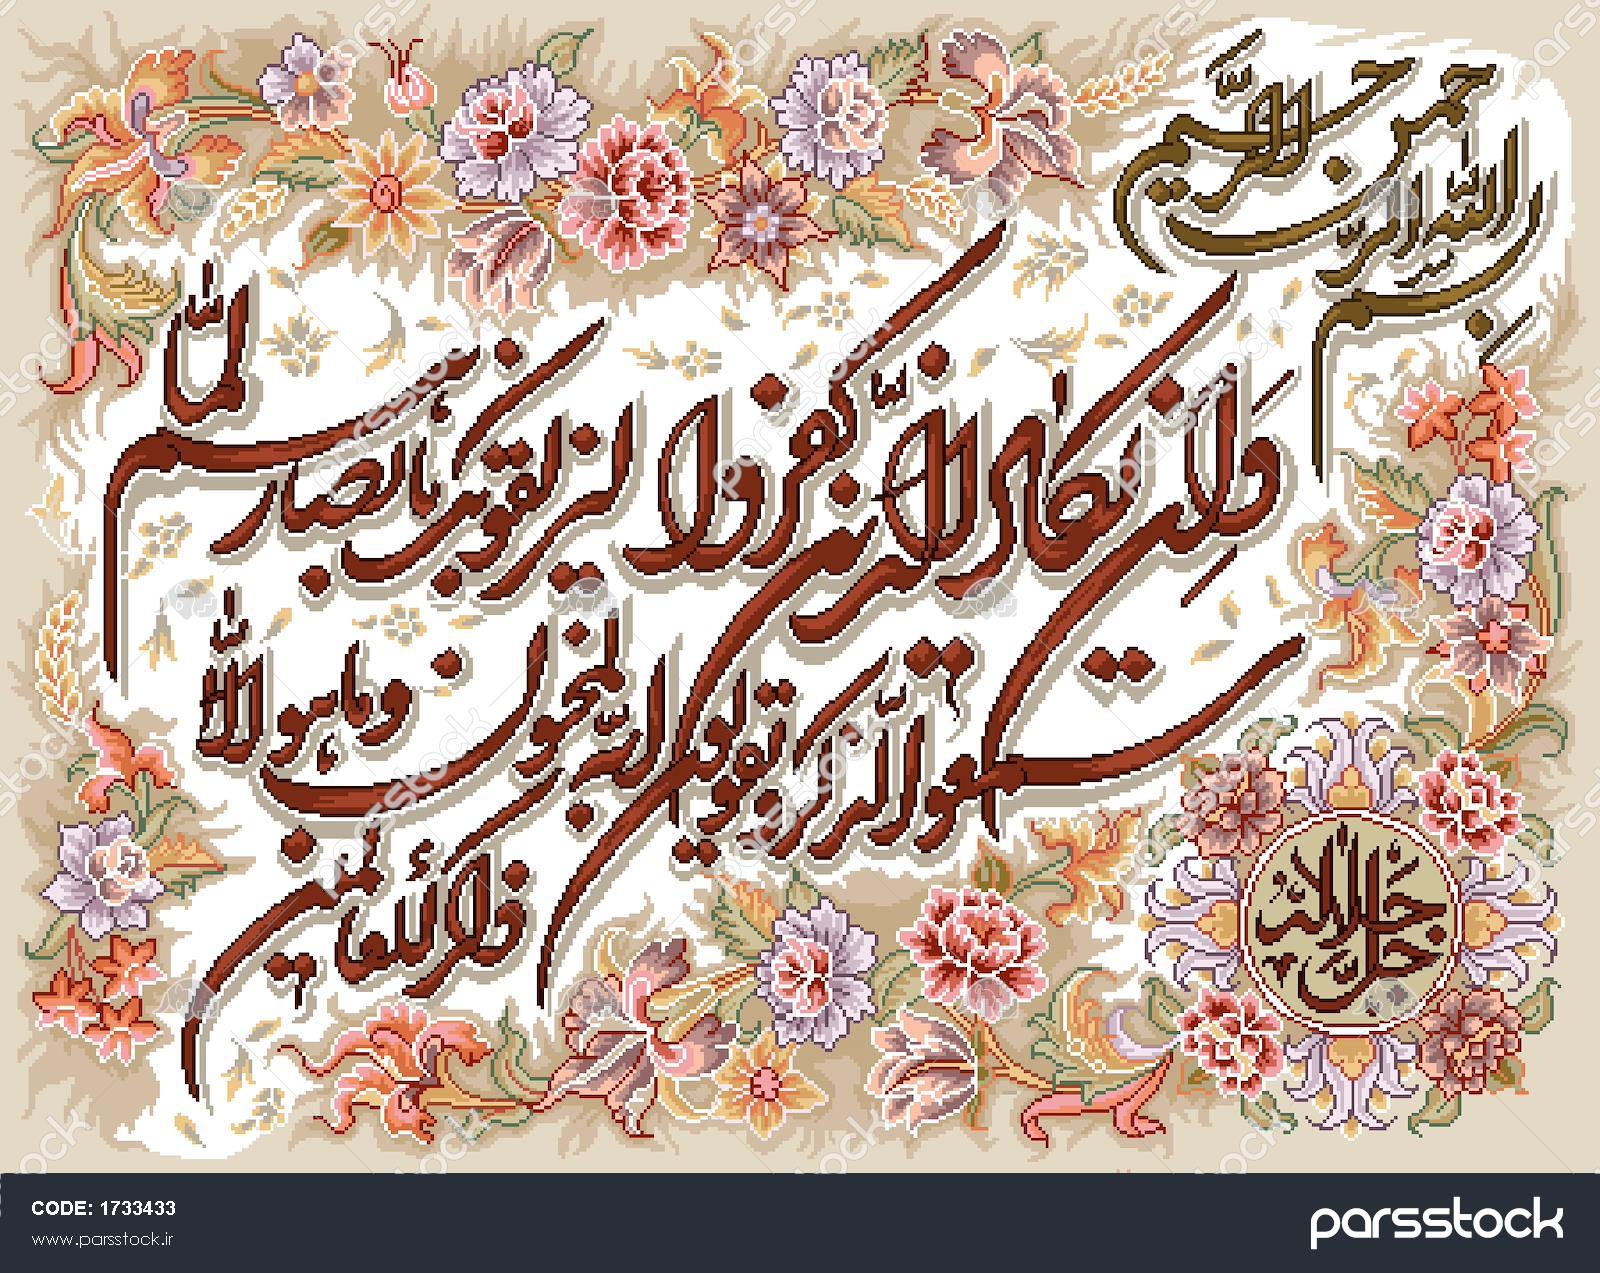 بسم الله الرحمن الرحیم
وان یکاد الذین کفروا لیزلقونک بابصارهم لما
سمعوا الذکر و یقولون انه لمجنون وما هو الا
ذکر للعالمین
جل جلاله
CODE: 1733433
www.parsstock.ir
parsstock